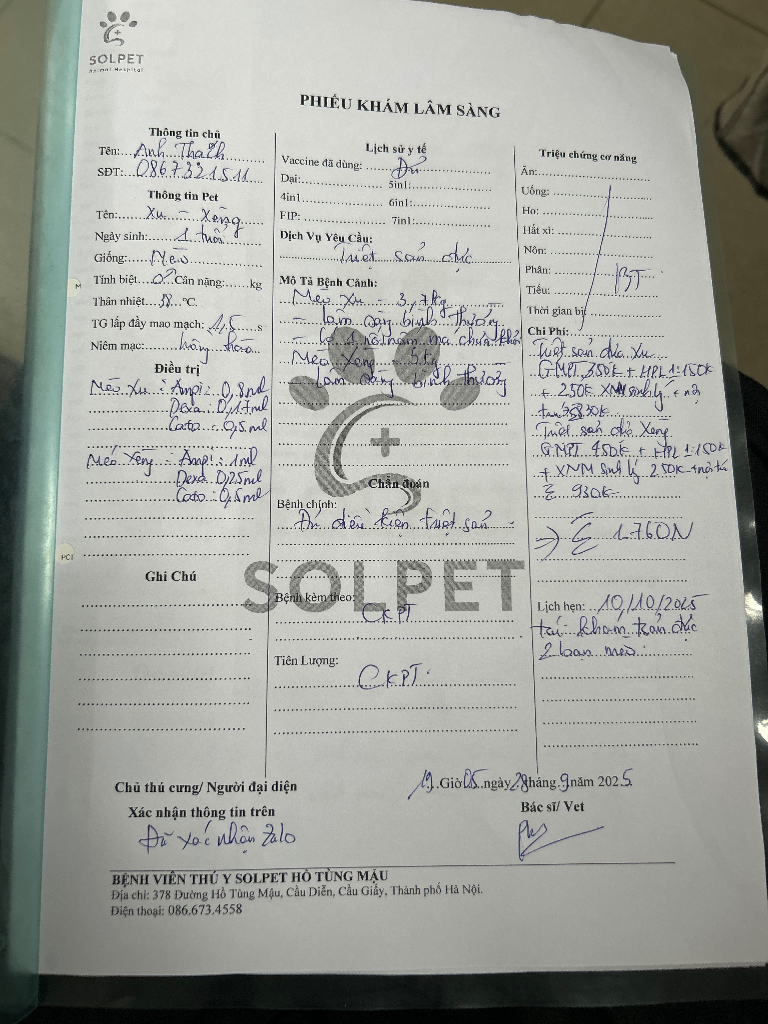 SOLPET
Animal Hospital
PHIẾU KHÁM LÂM SÀNG
Thông tin chủ
Tên: Anh Thạch
SĐT: 0867321511
Thông tin Pet
Tên: Xu - Xèng
Ngày sinh: 1 tuổi
Giống: Mèo
Tính biệt ♂ Cân nặng: kg
Thân nhiệt 38 °C.
TG lấp đầy mao mạch: 1,5 s
Niêm mạc: hồng hào
Điều trị
Mèo Xu : Ampi : 0,8ml
Dexa : 0,17ml
Cato : 0,5ml
Mèo Xèng : Ampi : 1ml
Dexa : 0,25ml
Cato : 0,5ml
Ghi Chú
Lịch sử y tế
Vaccine đã dùng: Đủ
Dại: 5in1:
4in1 6in1:
FIP: 7in1:
Dịch Vụ Yêu Cầu:
Triệt sản đực
Mô Tả Bệnh Cảnh:
Mèo Xu - 3,7kg
- lâm sàng bình thường
- có nấm má chưa khỏi
Mèo Xèng 5kg
- lâm sàng bình thường
Chẩn đoán
Bệnh chính:
Đủ điều kiện triệt sản
SOLPET
Bệnh kèm theo:
CKPT
Tiên Lượng:
CKPT.
Triệu chứng cơ năng
Ăn:
Uống:
Ho:
Hắt xì:
Nôn:
Phân: BT
Tiểu:
Thời gian bị
Chi Phí:
Triệt sản đực Xu
GMPT 350K + HPL 1:150K
+ 250K XNM sinh lý +
830K
Triệt sản đực Xèng
GMPT 450K + HPL 1:150K
+ XNM sinh lý 250K +
Σ 930K
→ Σ 1.760N
Lịch hẹn: 10/10/2025
tái khám triệt sản đực
2 bạn mèo.
19 Giờ 05 ngày 28 tháng 9 năm 2025
Chủ thú cưng/ Người đại diện
Xác nhận thông tin trên
Đã xác nhận Zalo
Bác sĩ/ Vet
BỆNH VIỆN THÚ Y SOLPET HỒ TÙNG MẬU
Địa chỉ: 378 Đường Hồ Tùng Mậu, Cầu Diễn, Cầu Giấy, Thành phố Hà Nội.
Điện thoại: 086.673.4558